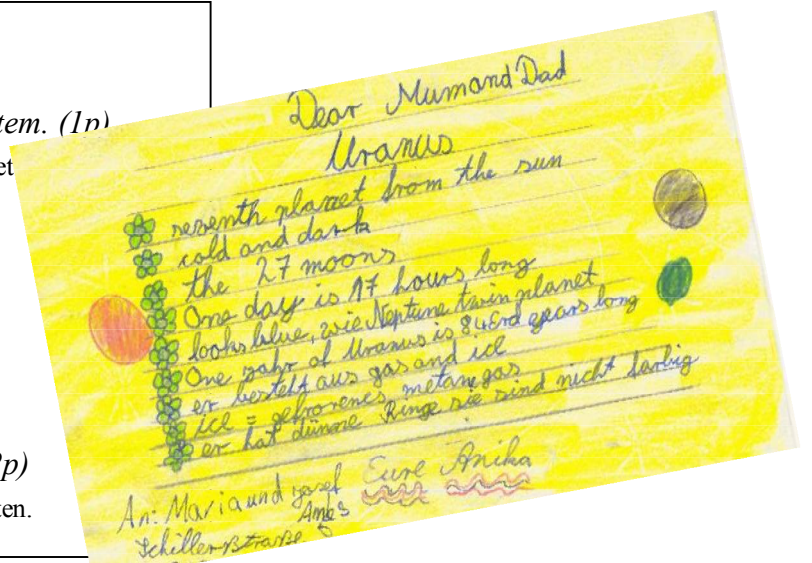 tem. (1p)
et
p)
ten.
Dear Mum and Dad
Uranus
seventh planet from the sun
cold and dark
the 27 moons
One day is 17 hours long
looks blue, wie Neptune twin planet
One yahr of Uranus is 84 Erd years long
er besteht aus gas and ice
ice = gefrorenes metangas
er hat dünne Ringe sie sind nicht farbig
Eure Anika
An: Maria und Josef
Schiller-Straße